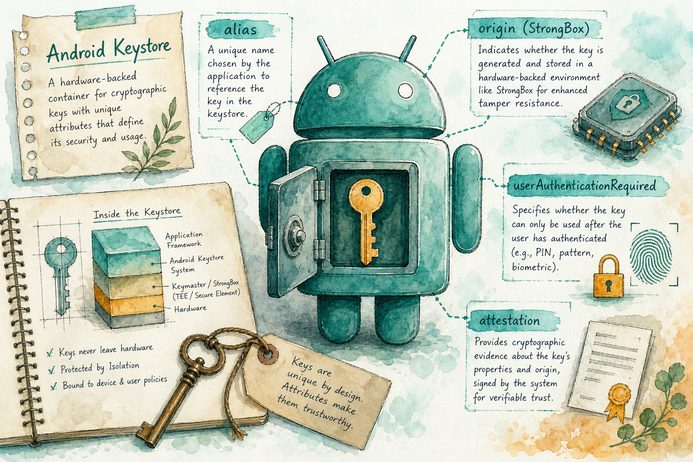 Android Keystore
A hardware-backed
container for cryptographic
keys with unique
attributes that define
its security and usage.
alias
A unique name
chosen by the
application to
reference the
key in the
keystore.
origin (StrongBox)
Indicates whether the key is
generated and stored in a
hardware-backed environment
like StrongBox for enhanced
tamper resistance.
userAuthenticationRequired
Specifies whether the key
can only be used after the
user has authenticated
(e.g., PIN, pattern,
biometric).
attestation
Provides cryptographic
evidence about the key's
properties and origin,
signed by the system
for verifiable trust.
Inside the Keystore
Application
Framework
Android Keystore
System
Keymaster / StrongBox
(TEE / Secure Element)
Hardware
✓ Keys never leave hardware
✓ Protected by Isolation
✓ Bound to device & user policies
Keys are
unique by design.
Attributes make
them trustworthy.